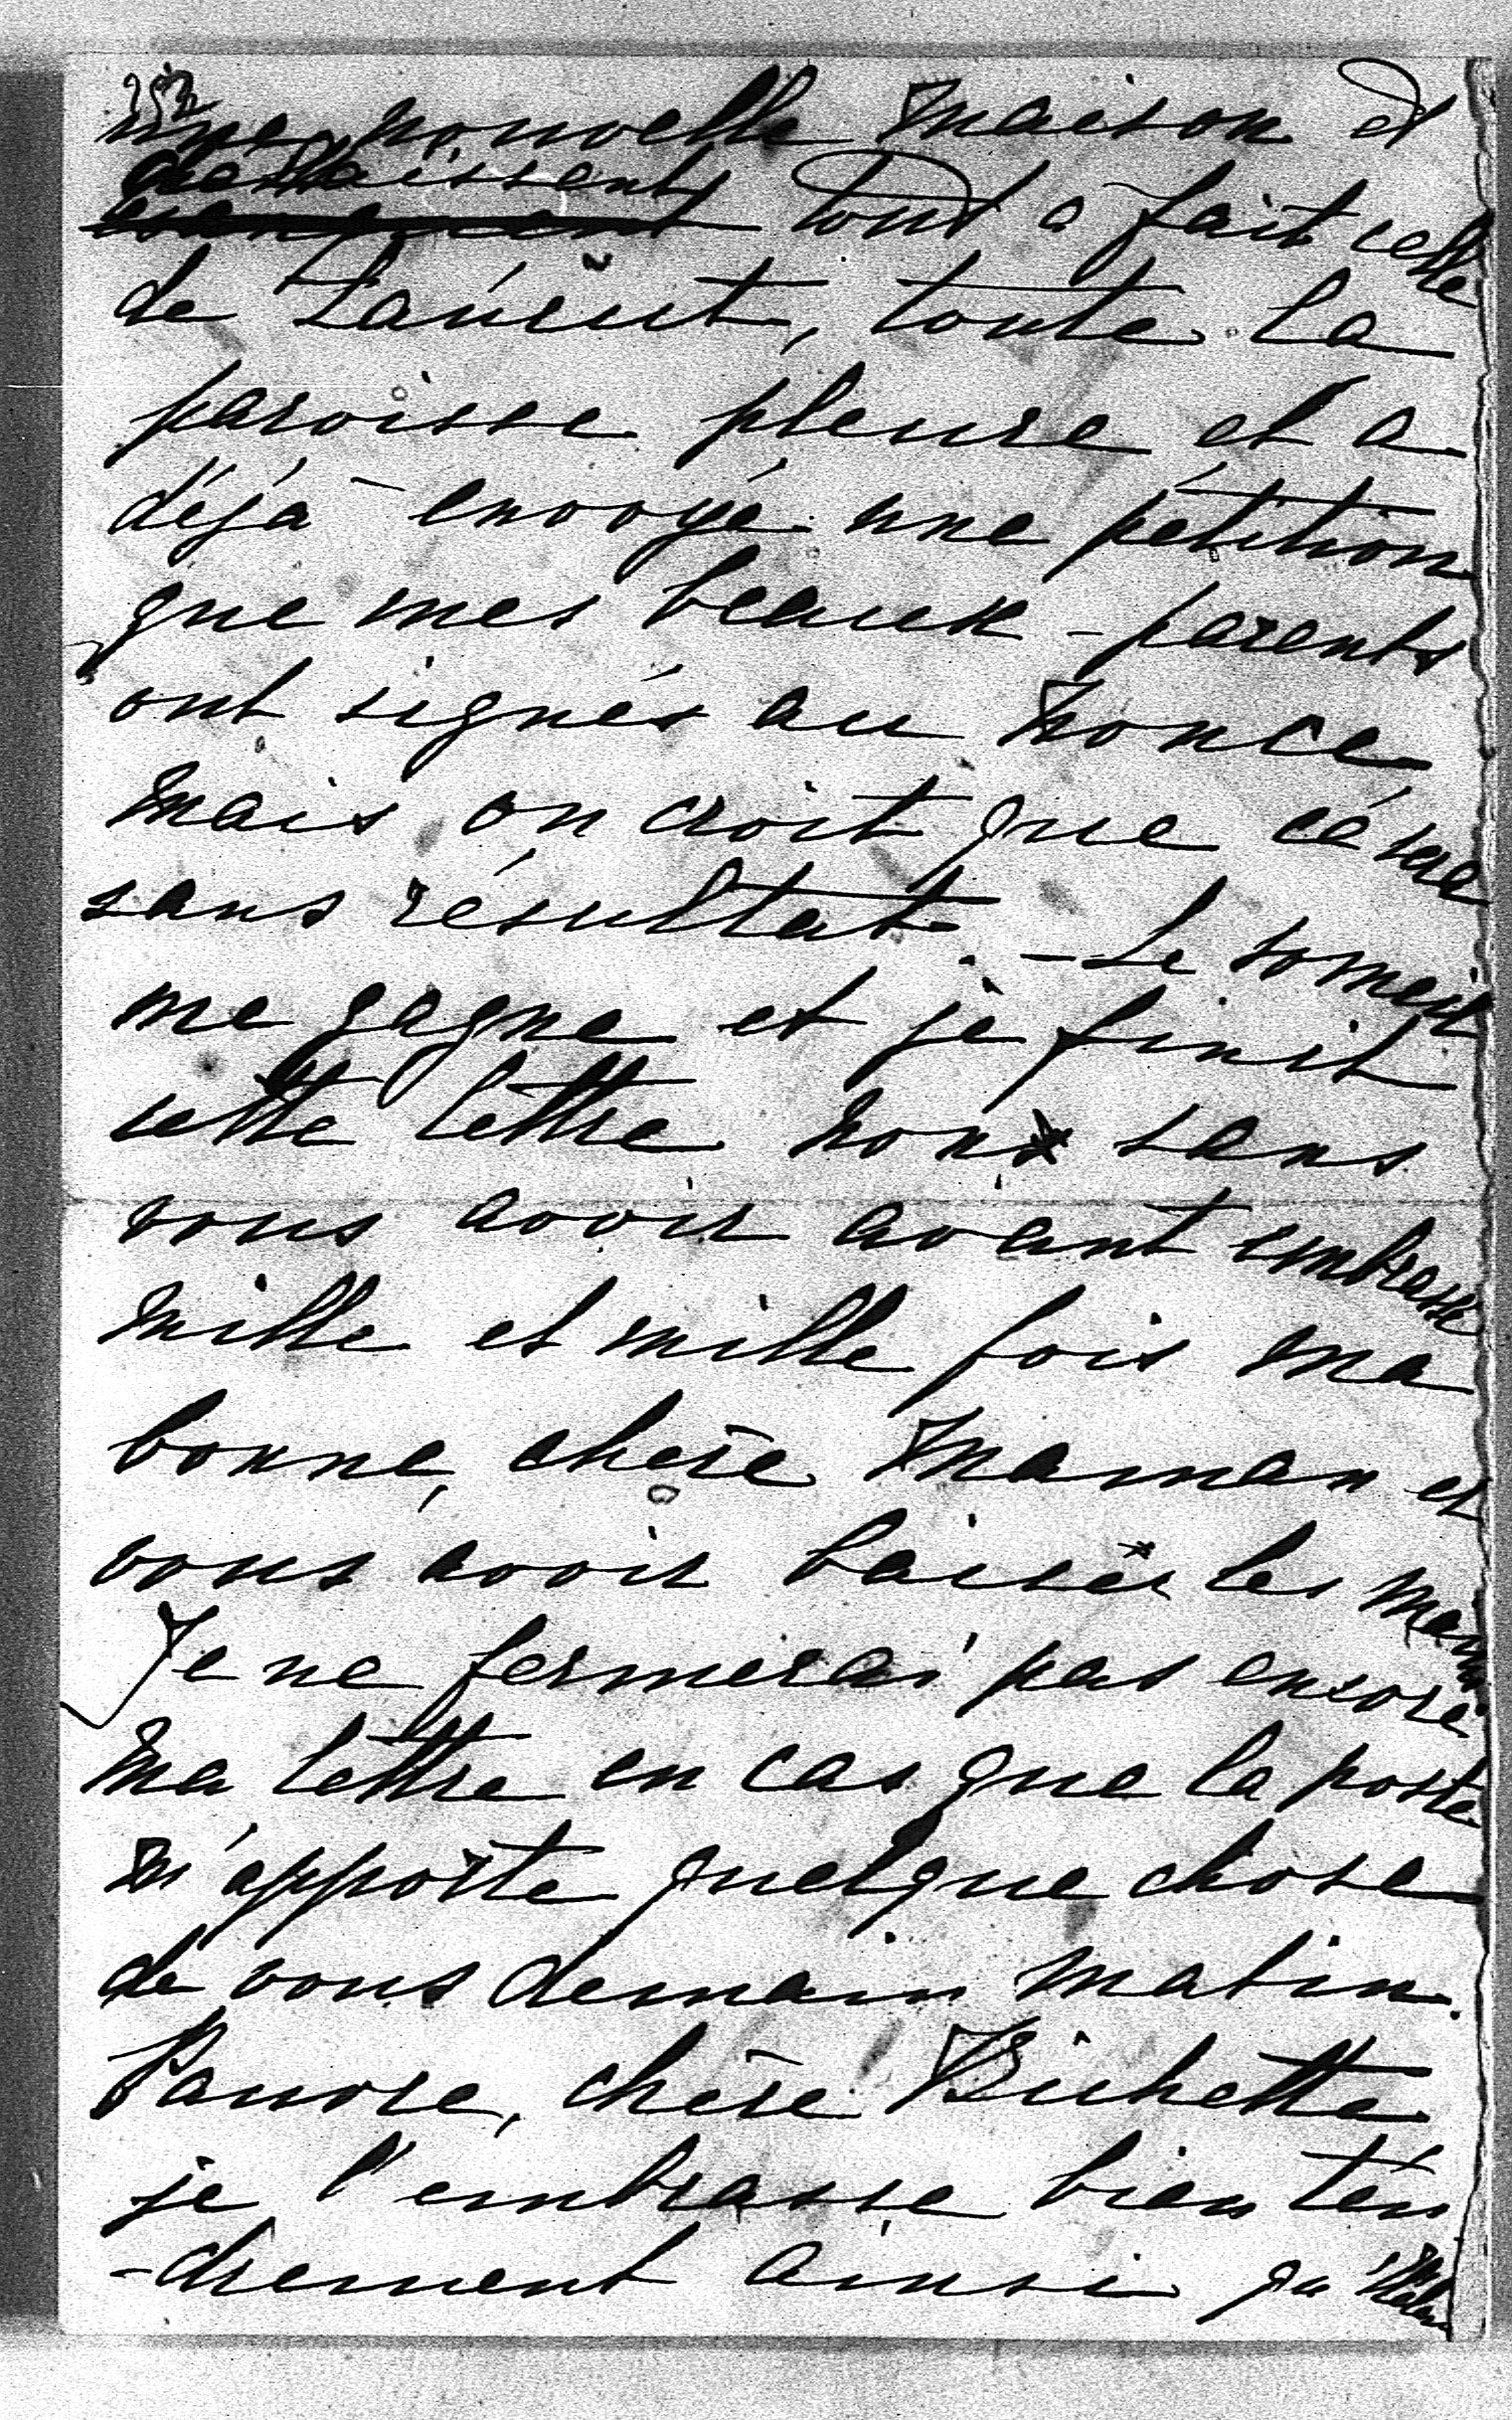 une nouvelle maison et
tout a fait celle
de Lancut, toute la
paroisse pleure et a
déjà envoyé une pétition
que mes beaux-parents
ont signés au Nonce
mais on croit que ce sera
sans résultat. - Le someil
me gagne et je finit
cette lettre non sans
vous avoir avant embrassé
mille et mille fois ma
bonne, chère Maman et
vous avoir baiser les mains
Je ne fermerai pas encore
ma lettre en cas que la poste
m'apporte quelque chose
de vous demain matin.
Pauvre, chère Bichette
je l'embrasse bien ten
-drement ainsi qu'